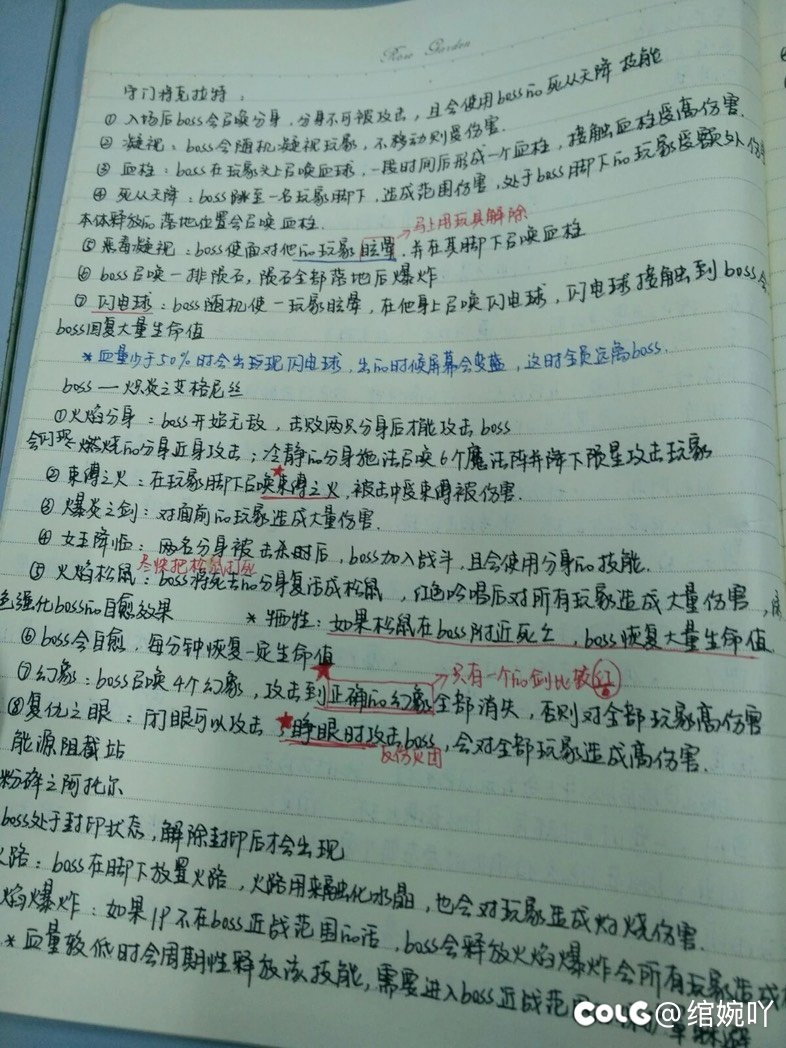 Rose Garden
守门将克拉特：
① 入场后boss会召唤分身，分身不可被攻击，且会使用boss的死从天降技能
② 凝视：boss会随机凝视玩家，不移动则受伤害.
③ 血柱：boss在玩家头上召唤血球，一段时间后形成一个血柱，接触血柱受高伤害.
④ 死从天降：boss跳至一名玩家脚下，造成范围伤害，处于boss脚下的玩家受额外伤害
本体释放的落地位置会召唤血柱.
马上用玩具解除
⑤ 恶毒凝视：boss使面对他的玩家眩晕，并在其脚下召唤血柱
⑥ boss召唤一排陨石，陨石全部落地后爆炸
⑦ 闪电球：boss随机使一玩家眩晕，在他身上召唤闪电球，闪电球接触到boss会
boss回复大量生命值
*血量少于50%时会出现闪电球，出的时候屏幕会变蓝，这时全员远离boss.
boss — 炽炎之艾格尼丝
①火焰分身：boss开始无敌，击败两只分身后才能攻击boss
燃烧的分身近身攻击；冷静的分身施法召唤6个魔法阵并降下陨星攻击玩家
② 束缚之火：在玩家脚下召唤束缚之火，被击中受束缚被伤害.
③ 爆炎之剑：对面前的玩家造成大量伤害.
④ 女王降临：两名分身被击杀时后，boss加入战斗，且会使用分身的技能.
尽快把松鼠打死
⑤ 火焰松鼠：boss将死去的分身复活成松鼠，红色吟唱后对所有玩家造成大量伤害，
色强化boss的自愈效果 *牺牲：如果松鼠在boss附近死亡，boss恢复大量生命值
⑥ boss会自愈，每分钟恢复一定生命值
只有一个的剑比较红
⑦幻象：boss召唤4个幻象，攻击到正确的幻象全部消失，否则对全部玩家高伤害
⑧复仇之眼：闭眼可以攻击，睁眼时攻击boss，会对全部玩家造成高伤害.
反伤火团
能源阻截站
粉碎之阿托尔
boss处于封印状态，解除封印后才会出现
火路：boss在脚下放置火路，火路用来融化水晶，也会对玩家造成灼烧伤害.
焰爆炸：如果1P不在boss近战范围的话，boss会释放火焰爆炸会所有玩家造成
*血量较低时会周期性释放该技能，需要进入boss近战范围
COLG@绾婉吖